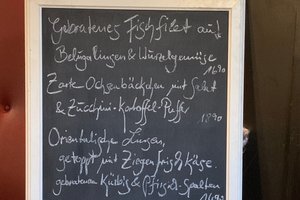 Gebratenes Fischfilet auf
Belugalinsen & Wurzelgemüse
14.90
Zarte Ochsenbäckchen mit Salat
& Zucchini-Kartoffel-Puffer
18.90
Orientalische Linsen,
getoppt mit Ziegenfrischkäse
gebratenen Kürbis & Pfirsich-Spalten
14.90